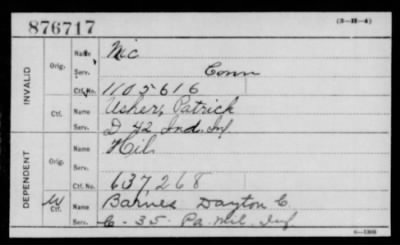 876717
(3-H-4)
INVALID
Orig.
Name Mc
Serv. Conn
Ctf. No. 1105616
Ctf.
Name Usher, Patrick
Serv. D 42 Ind. Inf
DEPENDENT
Orig.
Name Hil
Serv.
Ctf. No. 637,268
W
Ctf.
Name Barnes Dayton C.
Serv. C-35 Pa. Mil. Inf